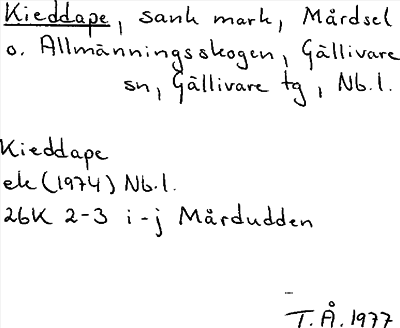 Kieddape, sank mark, Mårdsel
o. Allmänningsskogen, Gällivare
sn, Gällivare tg, Nb.l.
Kieddape
ek (1974) Nb.l.
26K 2-3 i-j Mårdudden
T.Å. 1977